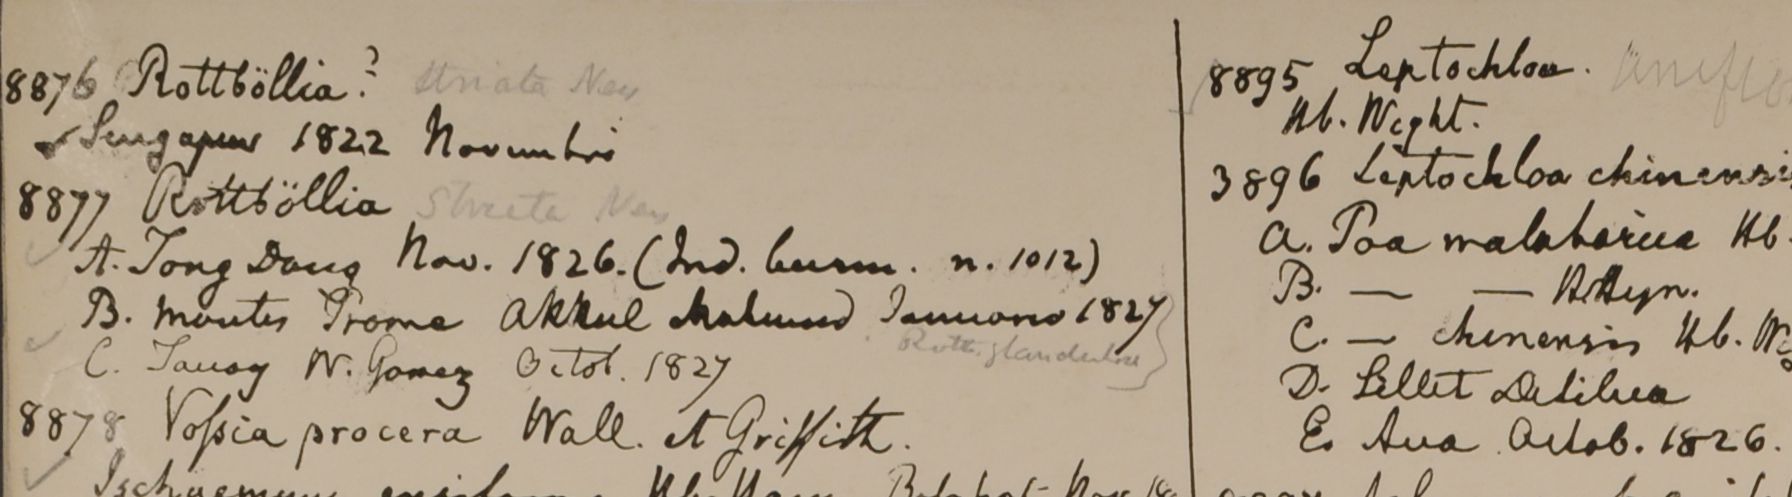 8876 Rottböllia? striata Nees
Singapur 1822 Novembri
8877 Rottböllia Striata Nees
A. Tong Dong Nov. 1826. (Ind. burm. n. 1012)
B. montes Prome Akkul 1827
Rottb. glandulosa
C. Tavoy W. Gomez Octob. 1827
8878 Voſsia procera Wall. et Griffith.
Ischaemum
8895 Leptochloa. uniflo
Hb. Wight.
3896 Leptochloa chinensi
a. Poa malabarica Hb.
B. — — Heyn.
C. — chinensis Hb. W
D. Sillet Desilva
E. Ava Octob. 1826.